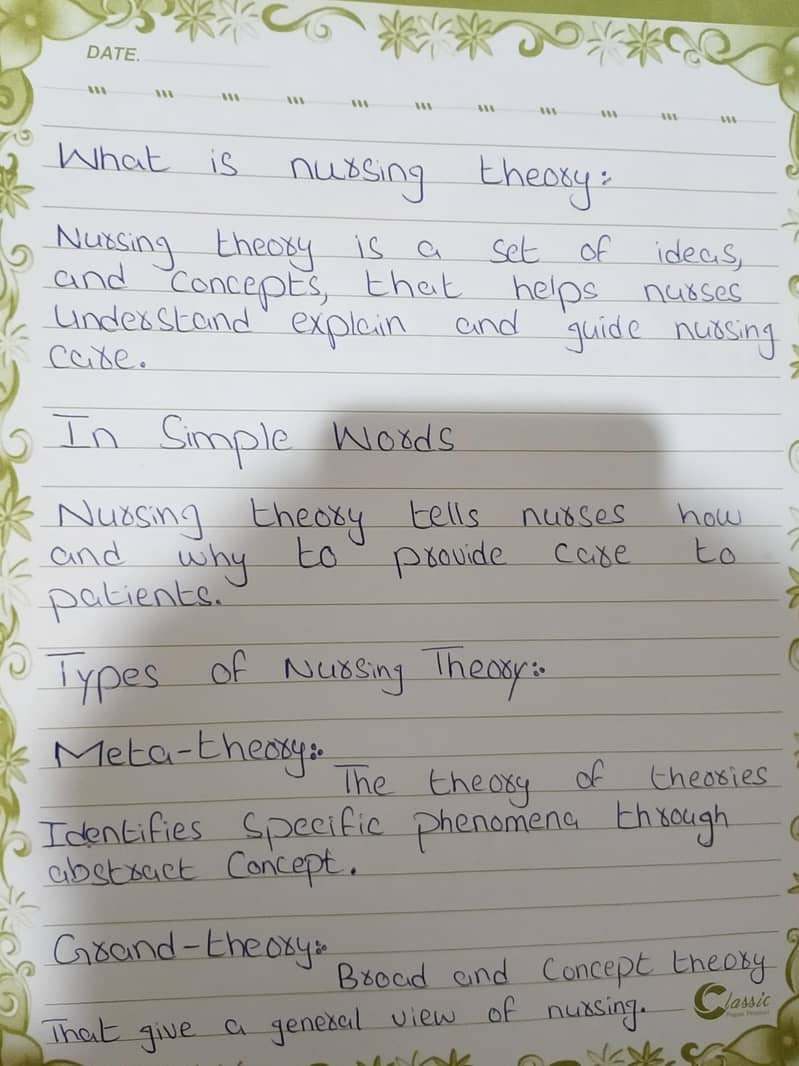 DATE.
What is nursing theory:
Nursing theory is a set of ideas,
and concepts, that helps nurses
understand explain and guide nursing
care.
In Simple Words
Nursing theory tells nurses how
and why to provide care to
patients.
Types of Nursing Theory:
Meta-theory:
The theory of theories
Identifies Specific phenomena through
abstract Concept.
Grand-theory:
Broad and Concept theory
That give a general view of nursing.
Classic
Paper Product